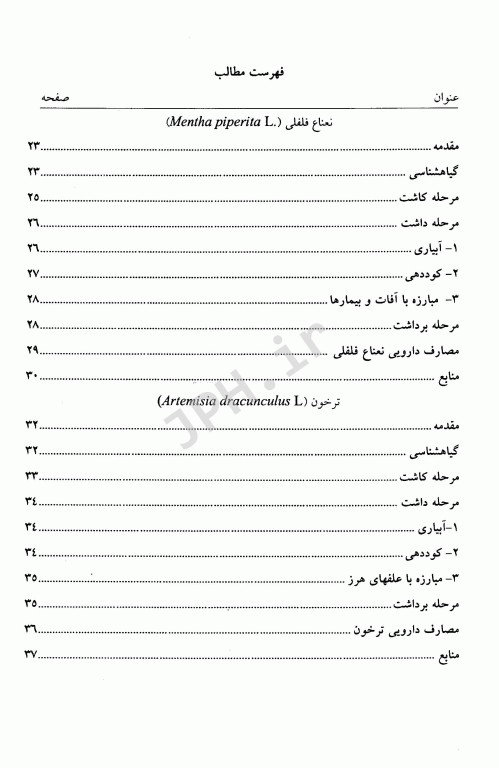 فهرست مطالب
عنوان صفحه
نعناع فلفلی (Mentha piperita L.)
مقدمه ۲۳
گیاهشناسی ۲۳
مرحله کاشت ۲۵
مرحله داشت ۲۶
۱- آبیاری ۲۶
۲- کوددهی ۲۷
۳- مبارزه با آفات و بیمارها ۲۸
مرحله برداشت ۲۸
مصارف دارویی نعناع فلفلی ۲۹
منابع ۳۰
ترخون (Artemisia dracunculus L)
مقدمه ۳۲
گیاهشناسی ۳۲
مرحله کاشت ۳۳
مرحله داشت ۳۴
۱-آبیاری ۳۴
۲- کوددهی ۳۴
۳- مبارزه با علفهای هرز ۳۵
مرحله برداشت ۳۵
مصارف دارویی ترخون ۳۶
منابع ۳۷
JPH.ir